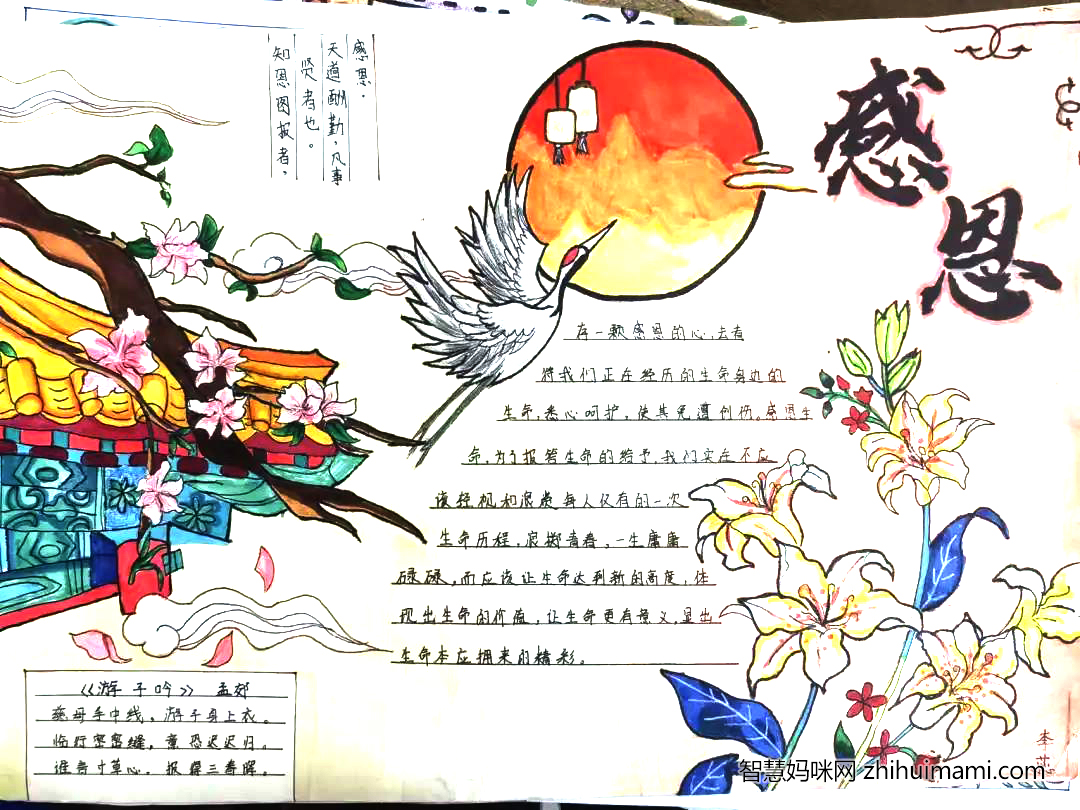 感恩
感恩。
天道酬勤，凡事
贤者也。
知恩图报者，
存一颗感恩的心，去看
待我们正在经历的生命身边的
生命，悉心呵护，使其免遭创伤。感恩生
命，为了报答生命的给予，我们实在不应
该轻视和浪费每人仅有的一次
生命历程，浪掷青春，一生庸庸
碌碌，而应该让生命达到新的高度，体
现出生命的价值，让生命更有意义，显出
生命本应拥来的精彩。
《游子吟》 孟郊
慈母手中线，游子身上衣。
临行密密缝，意恐迟迟归。
谁言寸草心，报得三春晖。
李芯
智慧妈咪网 zhihuimami.com